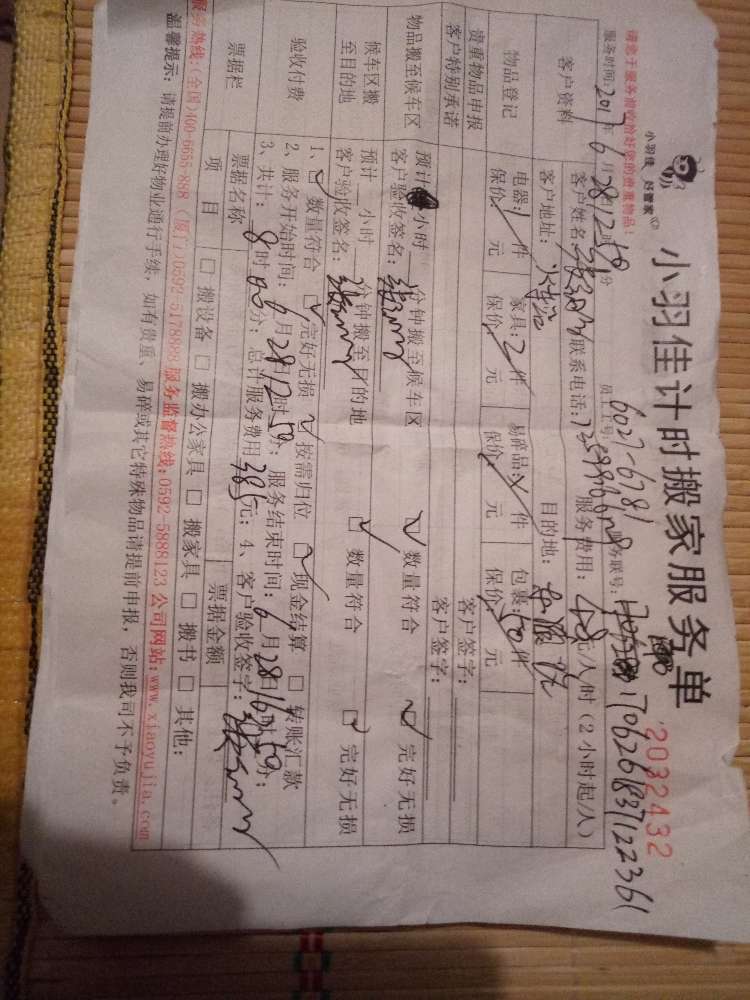 小羽佳 好管家
小羽佳计时搬家服务单
2032432
请您于服务前收拾好您的贵重物品!
员工工号: 6027-6781 服务联号: 1706261837122361
服务时间: 2017年6月28日12时50分
客户资料 客户姓名: 联系电话: 服务费用: 元/人/时(2小时起/人)
客户地址: 目的地:
物品登记 电器: 1件 家具: 2件 易碎品: 件 包裹: 50件
保价 元 保价 元 保价 元 保价 元
贵重物品申报 客户签字:
客户特别承诺 客户签字:
物品搬至候车区 预计 小时 分钟搬至候车区
客户验收签名: 数量符合 完好无损
候车区搬至目的地 预计 小时 分钟搬至目的地
客户验收签名: 数量符合 完好无损
验收付费 1、 数量符合 完好无损 按需归位 现金结算 转账汇款
2、服务开始时间: 6月28日12时50分; 服务结束时间: 6月28日16时50分;
3、共计: 8时00分; 总计服务费用385元; 4、客户验收签字:
票据栏 票据名称 票据金额
项目 搬设备 搬办公家具 搬家具 搬书 其他:
服务热线:(全国)400-6655-888 (厦门)0592-5178888 服务监督热线:0592-5888123 公司网站:www.xiaoyujia.com
温馨提示: 请提前办理好物业通行手续, 如有贵重、易碎或其它特殊物品请提前申报, 否则我司不予负责。